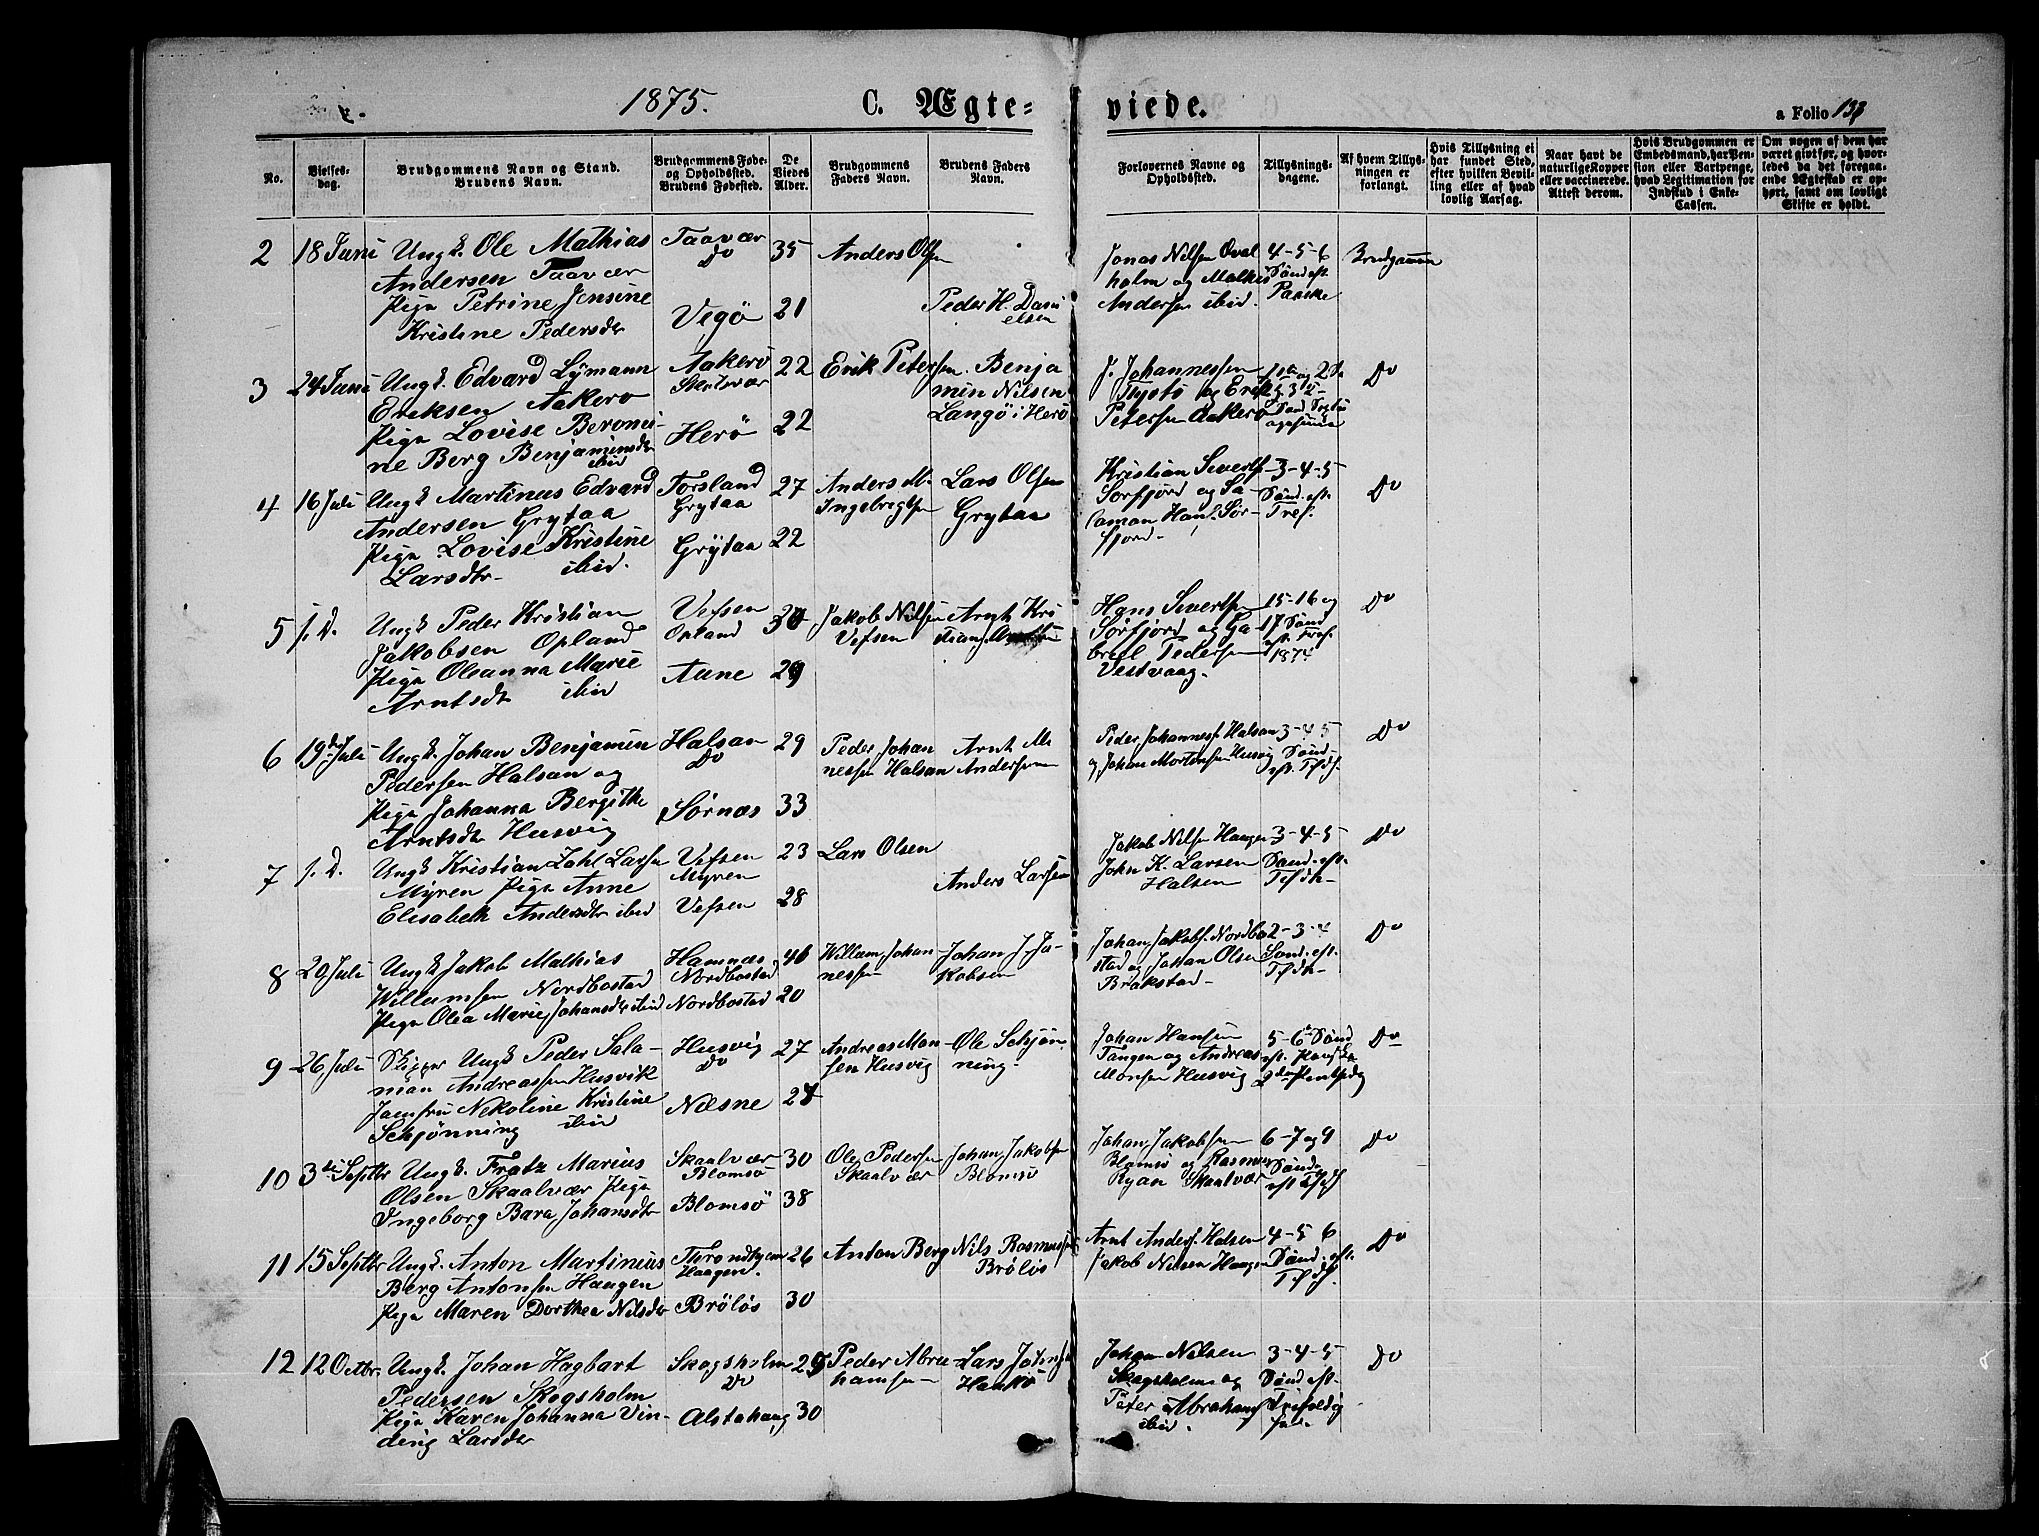 1875.
C. Ægte=
viede.
a Folio 138
No.
Vielses-
dag.
Brudgommens Navn og Stand.
Brudens Navn.
Brudgommens Føde-
og Opholdssted.
Brudens Fødested.
De
Viedes
Alder.
Brudgommens
Faders Navn.
Brudens Faders
Navn.
Forlovernes Navne og
Opholdssted.
Tillysnings-
dagene.
Af hvem Tillys-
ningen er
forlangt.
Hvis Tillysning ei
har fundet Sted,
efter hvilken Bevil-
ling eller af hvad
lovlig Aarsag.
Naar havt de
naturlige Kopper
eller vaccinerede.
Attest derom.
Hvis Brudgommen er
Embedsmand, har Pen-
sion eller Vartpenge,
hvad Legitimation for
Indskud i Enke-
Cassen.
Om nogen af dem har
været givt før, og hvor-
ledes da det foregaa-
ende Ægteskab er op-
hørt, samt om lovligt
Skifte er holdt.
2 18 Juni
Ungk. Ole Mathias
Andersen Taavær
Pige Petrine Jensine
Kristine Pedersdr
Taavær
Do
Vegö
35
21
Anders Olsen
Peder H. Dani
elsen
Jonas Nilsen Qval
holm og Matkis
Andersen ibid.
4-5-6
Sönd eft.
Paaske
Brudgommen
3 24 Juni
Ungk. Edvard Lymann
Eriksen Aakerö
Pige Lovise Beroni-
ne Berg Benjaminsdr
ibid
Aakerö
Herö
22
22
Erik Petersen
Benja
min Nilsen
Langö i Herö
J. Johannessen
og Erik
Petersen Aakerö
Do
4 16 Juli
Ungk Martinus Edvard
Andersen Grytaa
Pige Lovise Kristine
Larsdtr ibid.
Forsland
Grytaa
Grytaa
27
22
Anders M.
Ingebregtsen
Lars Olsen
Grytaa
Kristian Sivertsen
Sörfjord og Sa-
lamon Hans. Sör-
fjord
3-4-5
Sönd. eft.
Tref.
Do
5 s. D.
Ungk Peder Kristian
Jakobsen Opland
Pige Oleanna Marie
Arntsdt ibid
Vefsen
Opland
Aune
30
29
Jakob Nilsen
Vefsen
Arnt Kri
stians.
Hans Sivertsen
Sörfjord og Ga-
briel Pedersen
Vestvaag.
15-16 og
17 Sönd
eft. Tref.
1874
Do
6 19de Juli
Ungk. Johan Benjamin
Pedersen Halsan og
Pige Johanna Bergithe
Arntsdr Husvig
Halsan
Do
Sörnæs
29
33
Peder Johan
nessen Halsan
Arnt M.
Andersen
Peder Johanness. Halsan
og Johan Mortensen Husvig
3-4-5
Sönd
eft. Tfdh.
Do
7 s. D.
Ungk Kristian Zahl Larsen
Myren Pige Anne
Elisabeth Andersdtr ibid
Vefsen
Myren
Vefsen
23
28
Lars Olsen
Anders Larsen
Jakob Nilsen Haugen
John K. Larsen
Halsen
3-4-5
Sönd. eft.
Tfdh-
Do
8 20 Juli
Ungk Jakob Mathias
Willumsen Nordbostad
Pige Olea Marie Johansdr ibid
Hamnæs
Nordbostad
Nordbostad
46
20
Willum Johan-
nessen
Johan J. Ja-
kobsen
Johan Jakobs. Nordbo-
stad og Johan Olsen
Brakstad-
2-3-4
Sönd. eft.
Tfdh-
Do
9 26 Juli
Skipper Ungk Peder Sala-
mon Andreassen Husvik
Jomfru Nekoline Kristine
Schjönning ibid
Husvig
Do
Næsne
27
Andreas Mon-
sen Husvig
Ole Schjön-
ning.
Johan Hansen
Tangen og Andreas
Monsen Husvig
5-6 Sönd
eft. Paaske
Do
10 3de Septbr
Ungk. Fratz Marius
Olsen Skaalvær Pige
Ingeborg Bara Johansdtr
Skaalvær
Blomsö
Blomsö
30
38
Ole Pedersen
Skaalvær
Johan Jakobsen
Blomsö
Johan Jakobsen
Blomsö og Rasmus
Ryan Skaalvær
6-7 og 9
Sönd
Do
11 15 Septbr
Ungk. Anton Martinius
Berg Antonsen Haugen
Pige Maren Dorthea Nilsdr
Throndhjem
Haugen.
Brölös
26
30
Anton Berg
Nils Rasmussen
Brölös
Arnt Anders. Halsen
Jakob Nilsen Haugen
4-5 6
Sönd. eft.
Tfdh.
Do
12 12 Octbr
Ungk. Johan Hagbart
Pedersen Skogsholm
Pige Karen Johanna Vin-
ding Larsdr
Skogsholm
Do
Alstahaug
29
30
Peder Abra-
hamsen
Lars Johnsen
Johan Nilsen
Skogsholm og
Peter Abrahams.
ibid.
3-4-5
Sönd eft.
Do